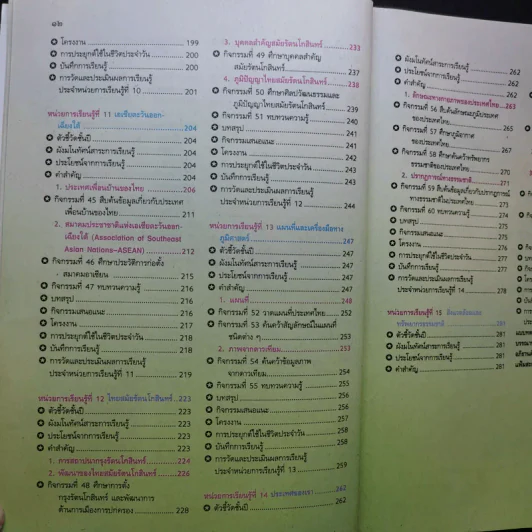 ๘๒
โครงงาน 199
การประยุกต์ใช้ในชีวิตประจำวัน 200
บันทึกการเรียนรู้ 200
การวัดและประเมินผลการเรียนรู้
ประจำหน่วยการเรียนรู้ที่ 10 201
หน่วยการเรียนรู้ที่ 11 เอเชียตะวันออก-
เฉียงใต้ 204
ตัวชี้วัดชั้นปี 204
ผังมโนทัศน์สาระการเรียนรู้ 204
ประโยชน์จากการเรียนรู้ 204
คำสำคัญ 204
1. ประเทศเพื่อนบ้านของไทย 206
กิจกรรมที่ 45 สืบค้นข้อมูลเกี่ยวกับประเทศ
เพื่อนบ้านของไทย 211
2. สมาคมประชาชาติแห่งเอเชียตะวันออก-
เฉียงใต้ (Association of Southeast
Asian Nations-ASEAN) 212
กิจกรรมที่ 46 ศึกษาประวัติการก่อตั้ง
สมาคมอาเซียน 215
กิจกรรมที่ 47 ทบทวนความรู้ 216
บทสรุป 216
กิจกรรมเสนอแนะ 216
โครงงาน 217
การประยุกต์ใช้ในชีวิตประจำวัน 218
บันทึกการเรียนรู้ 218
การวัดและประเมินผลการเรียนรู้
ประจำหน่วยการเรียนรู้ที่ 11 219
หน่วยการเรียนรู้ที่ 12 ไทยสมัยรัตนโกสินทร์ 223
ตัวชี้วัดชั้นปี 223
ผังมโนทัศน์สาระการเรียนรู้ 223
ประโยชน์จากการเรียนรู้ 223
คำสำคัญ 223
1. การสถาปนากรุงรัตนโกสินทร์ 224
2. พัฒนาของไทยสมัยรัตนโกสินทร์ 226
กิจกรรมที่ 48 ศึกษาการตั้ง
กรุงรัตนโกสินทร์ และพัฒนาการ
ด้านการเมืองการปกครอง 228
3. บุคคลสำคัญสมัยรัตนโกสินทร์ 233
กิจกรรมที่ 49 ศึกษาบุคคลสำคัญ
สมัยรัตนโกสินทร์ 237
4. ภูมิปัญญาไทยสมัยรัตนโกสินทร์ 238
กิจกรรมที่ 50 ศึกษาศิลปวัฒนธรรมและ
ภูมิปัญญาไทยสมัยรัตนโกสินทร์ 240
กิจกรรมที่ 51 ทบทวนความรู้ 240
บทสรุป 241
กิจกรรมเสนอแนะ 241
โครงงาน 242
การประยุกต์ใช้ในชีวิตประจำวัน 243
บันทึกการเรียนรู้ 243
การวัดและประเมินผลการเรียนรู้
ประจำหน่วยการเรียนรู้ที่ 12 244
หน่วยการเรียนรู้ที่ 13 แผนที่และเครื่องมือทาง
ภูมิศาสตร์ 247
ตัวชี้วัดชั้นปี 247
ผังมโนทัศน์สาระการเรียนรู้ 247
ประโยชน์จากการเรียนรู้ 247
คำสำคัญ 247
1. แผนที่ 248
กิจกรรมที่ 52 วาดแผนที่ประเทศไทย 252
กิจกรรมที่ 53 ค้นคว้าสัญลักษณ์ในแผนที่
ชนิดต่าง ๆ 253
2. ภาพจากดาวเทียม 253
กิจกรรมที่ 54 ค้นคว้าข้อมูลภาพ
จากดาวเทียม 254
กิจกรรมที่ 55 ทบทวนความรู้ 255
บทสรุป 256
กิจกรรมเสนอแนะ 256
โครงงาน 257
การประยุกต์ใช้ในชีวิตประจำวัน 258
บันทึกการเรียนรู้ 258
การวัดและประเมินผลการเรียนรู้
ประจำหน่วยการเรียนรู้ที่ 13 259
หน่วยการเรียนรู้ที่ 14 ประเทศของเรา 262
ตัวชี้วัดชั้นปี 262
ผังมโนทัศน์สาระการเรียนรู้ 262
ประโยชน์จากการเรียนรู้ 262
คำสำคัญ 262
1. ลักษณะทางกายภาพของประเทศไทย 263
กิจกรรมที่ 56 สืบค้นลักษณะภูมิประเทศ
ของประเทศไทย 265
กิจกรรมที่ 57 ศึกษาภูมิอากาศ
ของประเทศไทย 267
กิจกรรมที่ 58 ศึกษาค้นคว้าทรัพยากร
ธรรมชาติของประเทศไทย 270
2. ปรากฏการณ์ทางธรรมชาติ 271
กิจกรรมที่ 59 สืบค้นข้อมูลเกี่ยวกับปรากฏการณ์
ทางธรรมชาติในประเทศไทย 274
กิจกรรมที่ 60 ทบทวนความรู้ 274
บทสรุป 275
กิจกรรมเสนอแนะ 275
โครงงาน 276
การประยุกต์ใช้ในชีวิตประจำวัน 277
บันทึกการเรียนรู้ 277
การวัดและประเมินผลการเรียนรู้
ประจำหน่วยการเรียนรู้ที่ 14 278
หน่วยการเรียนรู้ที่ 15
ทรัพยากรธรรมชาติ 281
ตัวชี้วัดชั้นปี 281
ผังมโนทัศน์สาระการเรียนรู้ 281
ประโยชน์จากการเรียนรู้ 281
คำสำคัญ 281